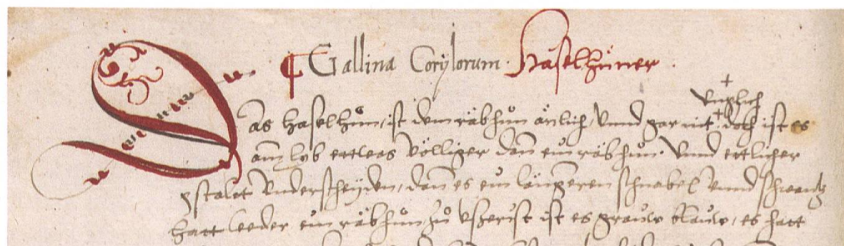 ¶ Gallina Corylorum. Haselhüner.
unglich
Das haselhůn ist dem räbhůn änlich, unnd gar nit doch ist es
am lyb ettwas völliger dann ein räbhůn. Unnd ettlicher
gstalet underscheyden, dann es ein längeren schnabel unnd schwantz
hatt weder ein räbhůn, zů usserist ist es grauw blauw, es hatt